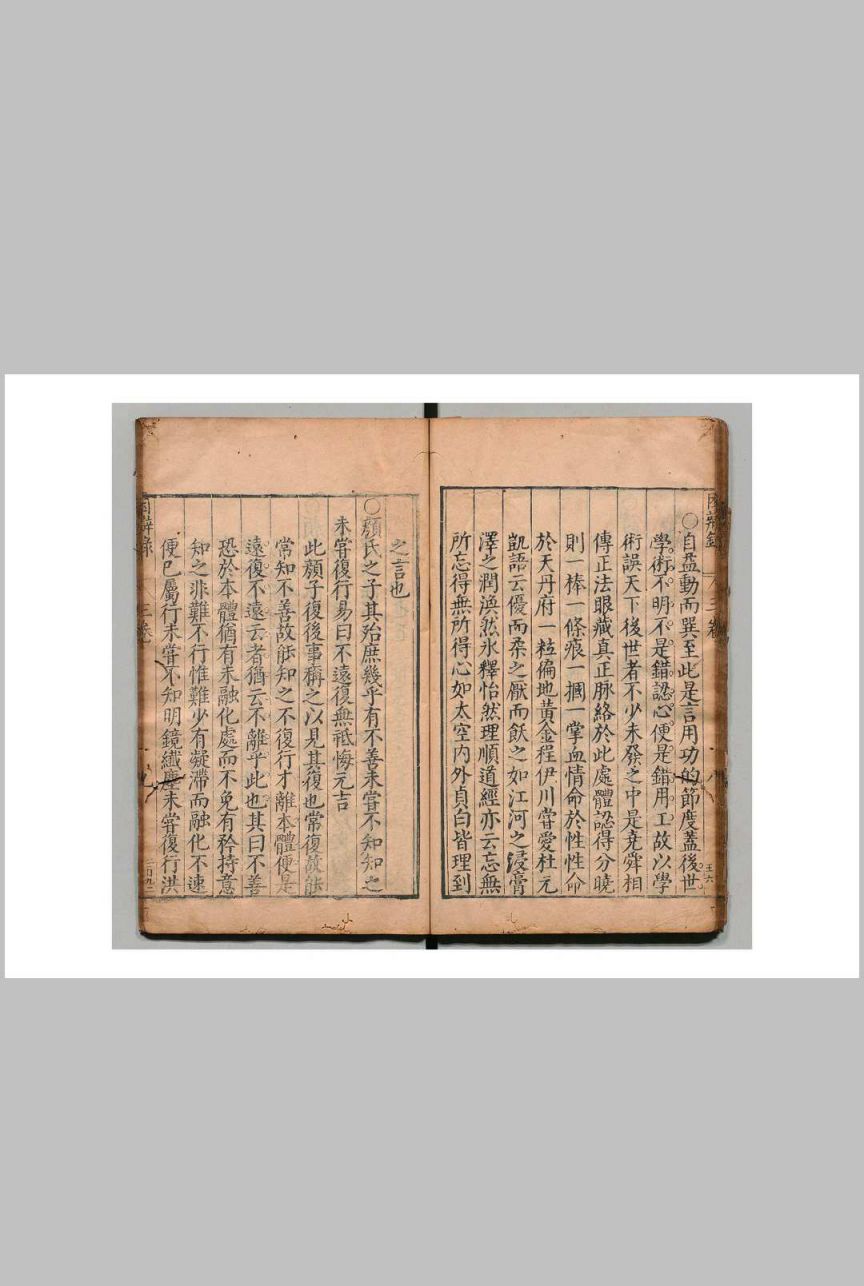 〇自盈動而巽至此是言用功的節度蓋後世
學術不明不是錯認心便是錯用工故以學
術誤天下後世者不少未發之中是堯舜相
傳正法眼藏真正脉絡於此處體認得分曉
則一棒一條痕一摑一掌血情命於性性命
於天丹府一粒徧地黃金程伊川甞愛杜元
凱語云優而柔之厭而飫之如江河之浸膏
澤之潤渙然氷釋怡然理順道經亦云忘無
所忘得無所得心如太空内外貞白皆理到
之言也
〇顏氏之子其殆庶幾乎有不善未甞不知知之
未甞復行易曰不遠復無祗悔元吉
此顏子復後事稱之以見其復也常復故能
常知不善故能知之不復行才離本體便是
遠復不遠云者猶云不離乎此也其曰不善
恐於本體猶有未融化處而不免有矜持意
知之非難不行惟難少有凝滯而融化不速
便已屬行未甞不知明鏡纖塵未甞復行洪
困辯錄
三卷